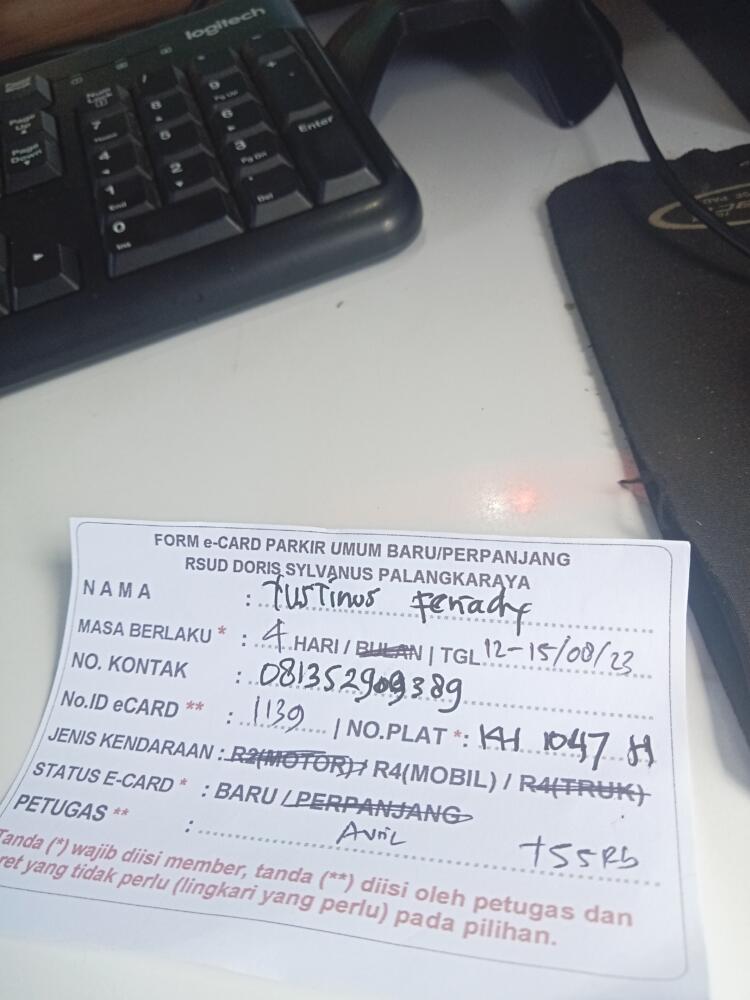 logitech
Num Lock
7 Home
8
9 Pg Up
4
5
6
1 End
2
3 Pg Dn
Enter
0 Ins
Del
Page Up
Page Down
FORM e-CARD PARKIR UMUM BARU/PERPANJANG
RSUD DORIS SYLVANUS PALANGKARAYA
NAMA :
MASA BERLAKU * : 4 HARI / BULAN | TGL 12-15/08/23
NO. KONTAK : 081352909389
No.ID eCARD ** : 1139 | NO.PLAT *: KH 1047 H
JENIS KENDARAAN : R2(MOTOR) / R4(MOBIL) / R4(TRUK)
STATUS E-CARD * : BARU / PERPANJANG
PETUGAS ** : Avril
Tanda (*) wajib diisi member, tanda (**) diisi oleh petugas dan
ret yang tidak perlu (lingkari yang perlu) pada pilihan.